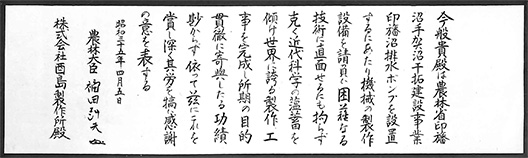 今般貴殿は農林省印旛
沼手賀沼干拓建設事業
印旛沼排水ポンプを設置
するにあたり機械の製作
設備を請負ひ困難なる
技術に直面せるにも拘らず
克く近代科学の蘊蓄を
傾け世界に誇る製作工
事を完成し所期の目的
貫徹に寄与したる功績
尠からず依つて茲にこれを
賞し深く其労を犒ひ感謝
の意を表する
昭和三十五年四月五日
農林大臣 福田赳夫
株式会社酉島製作所殿